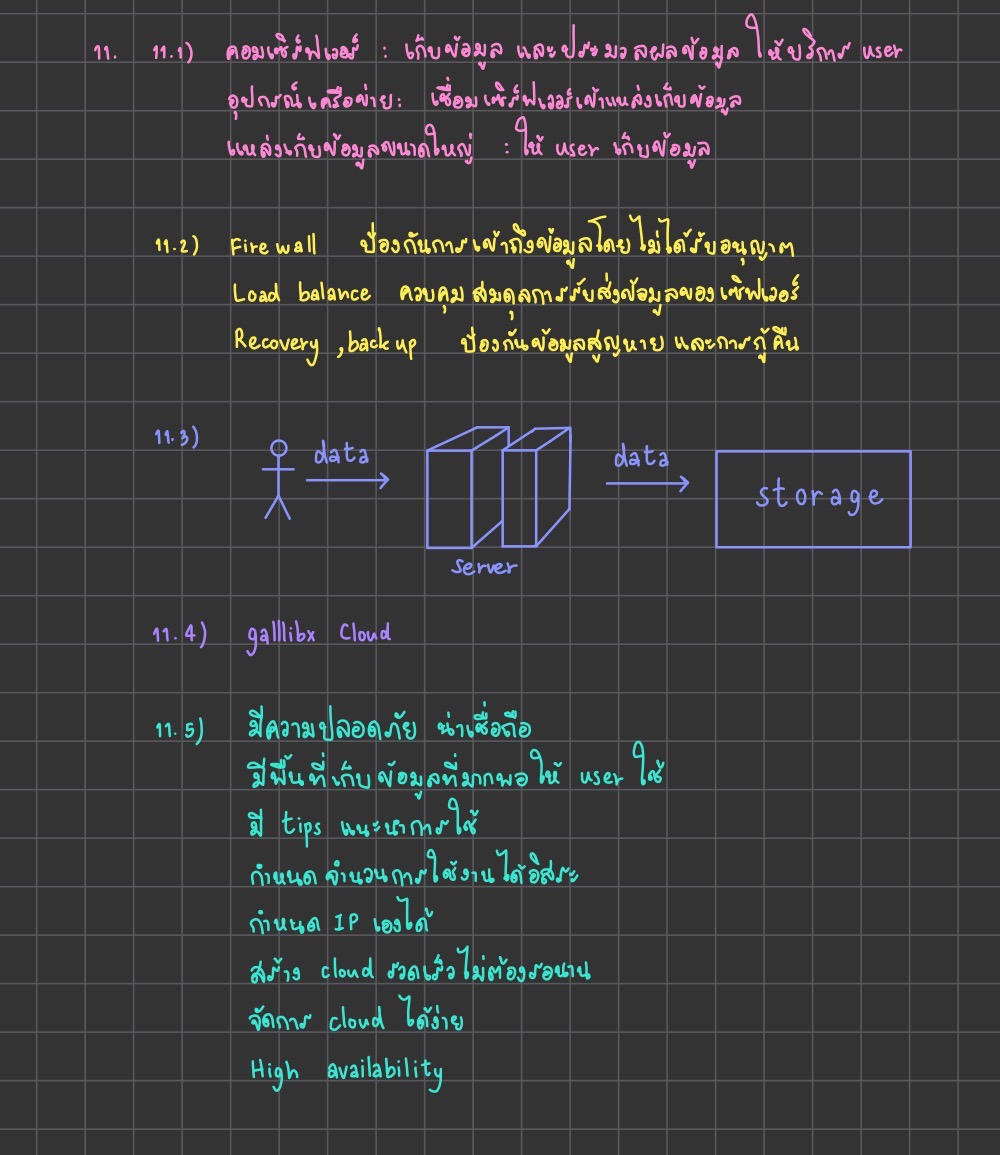 11. 11.1) คอมเซิร์ฟเวอร์ : เก็บข้อมูล และประมวลผลข้อมูล ให้บริการ user
อุปกรณ์เครือข่าย: เชื่อมเซิร์ฟเวอร์เข้าแหล่งเก็บข้อมูล
แหล่งเก็บข้อมูลขนาดใหญ่ : ให้ user เก็บข้อมูล
11.2) Firewall ป้องกันการเข้าถึงข้อมูลโดยไม่ได้รับอนุญาต
Load balance ควบคุม สมดุลการรับส่งข้อมูลของเซิฟเวอร์
Recovery , backup ป้องกันข้อมูลสูญหาย และการกู้คืน
11.3)
data
server
data
storage
11.4) galllibx Cloud
11.5) มีความปลอดภัย น่าเชื่อถือ
มีพื้นที่เก็บข้อมูลที่มากพอ ให้ user ใช้
มี tips แนะนำการใช้
กำหนด จำนวนการใช้งาน ได้อิสระ
กำหนด IP เองได้
สร้าง cloud รวดเร็ว ไม่ต้องรอนาน
จัดการ cloud ได้ง่าย
High availability